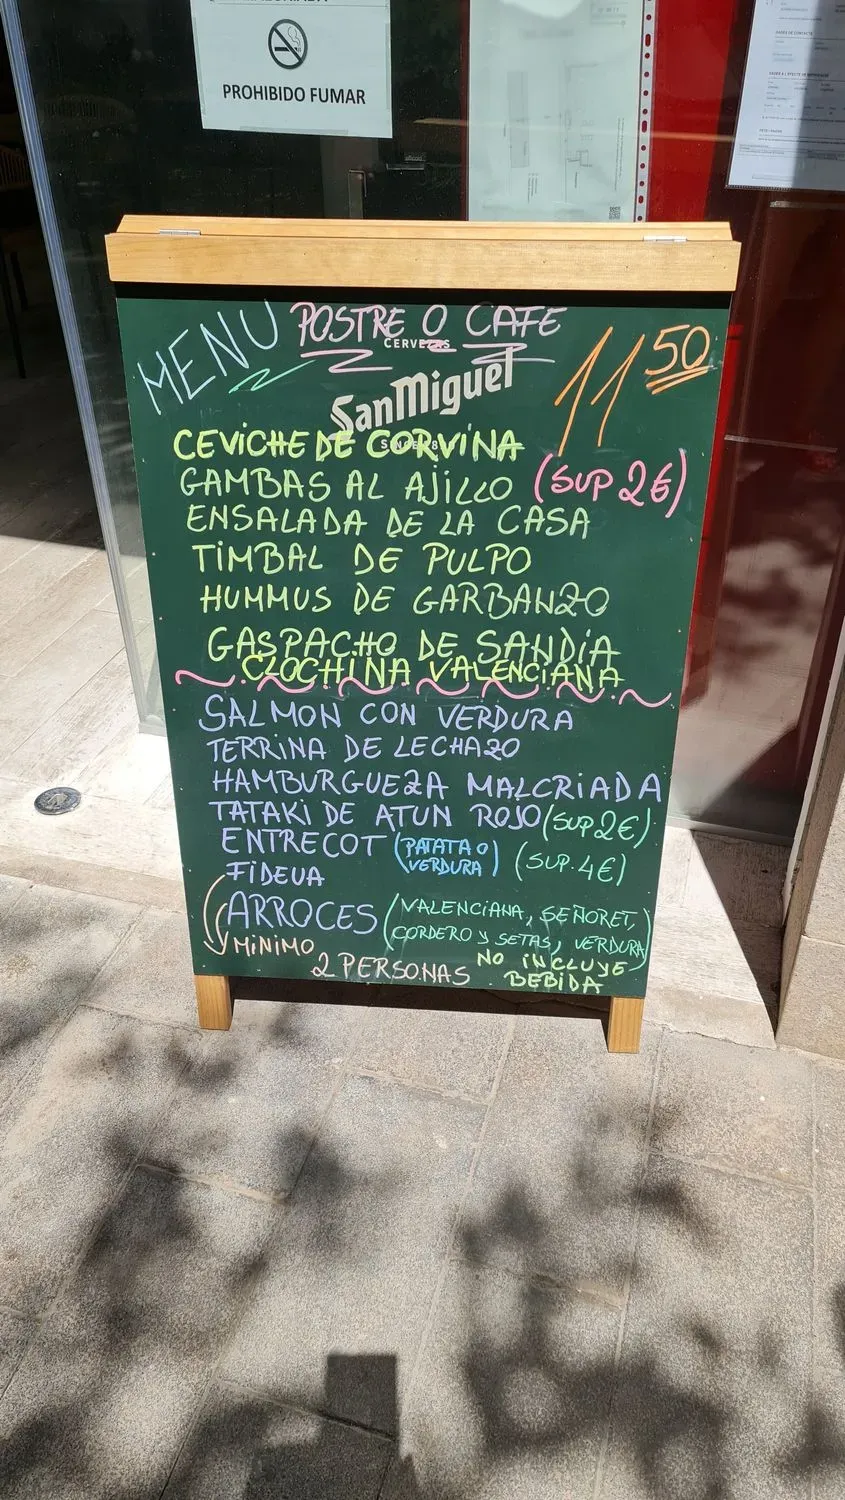 PROHIBIDO FUMAR
MENU POSTRE O CAFE 11 50
CERVEZAS
SanMiguel
CEVICHE DE CORVINA
GAMBAS AL AJILLO (SUP 2€)
ENSALADA DE LA CASA
TIMBAL DE PULPO
HUMMUS DE GARBANZO
GASPACHO DE SANDIA
CLOCHINA VALENCIANA
SALMON CON VERDURA
TERRINA DE LECHAZO
HAMBURGUEZA MALCRIADA
TATAKI DE ATUN ROJO (SUP 2€)
ENTRECOT (PATATA O VERDURA) (SUP. 4€)
FIDEUA
ARROCES (VALENCIANA, SEÑORET,
CORDERO Y SETAS, VERDURA)
MINIMO
2 PERSONAS
NO INCLUYE
BEBIDA